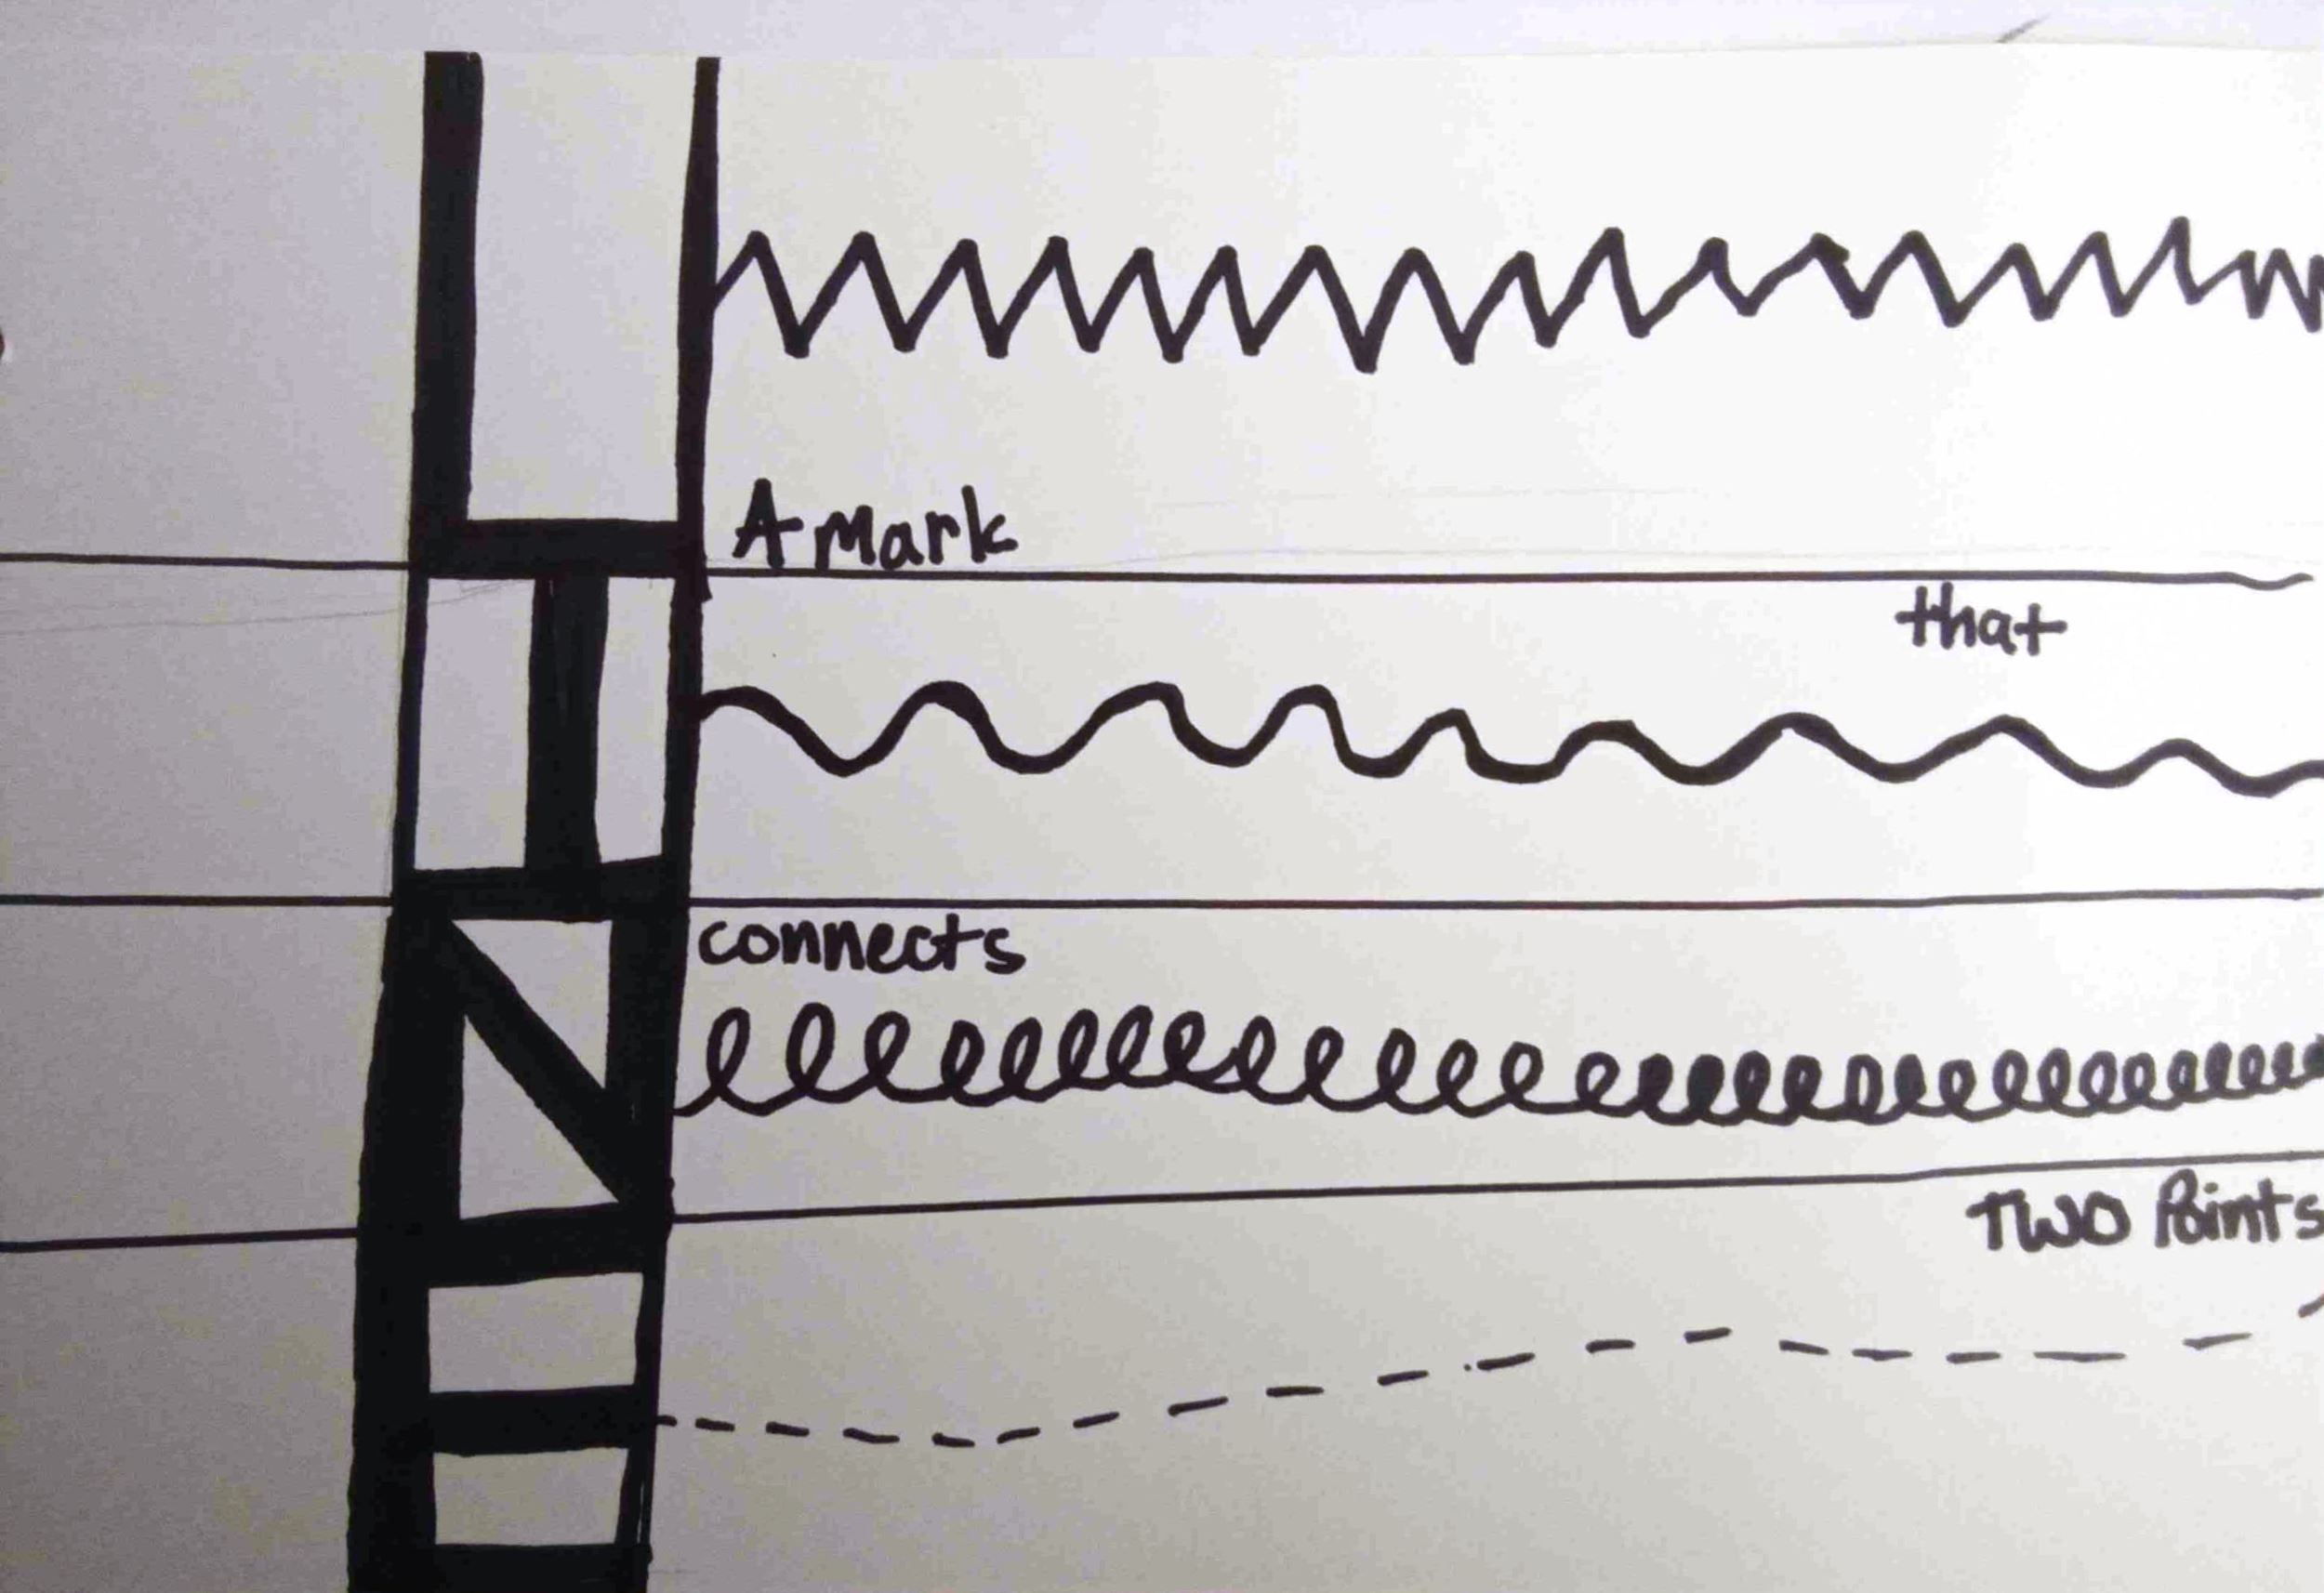 LINE
A Mark
that
connects
Two Points